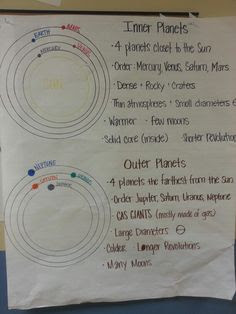 Inner Planets
MARS
EARTH
VENUS
MERCURY
SUN
• 4 planets closest to the Sun
• Order: Mercury, Venus, Saturn, Mars
• Dense + Rocky / Craters
Thin atmospheres + Small diameters
• Warmer • Few moons
Solid core (inside) • Shorter Revolution
Outer Planets
NEPTUNE
SATURN
URANUS
JUPITER
• 4 planets the farthest from the Sun
• Order: Jupiter, Saturn, Uranus, Neptune
• GAS GIANTS (mostly made of gas)
• Large Diameters
• Colder • Longer Revolutions
• Many Moons